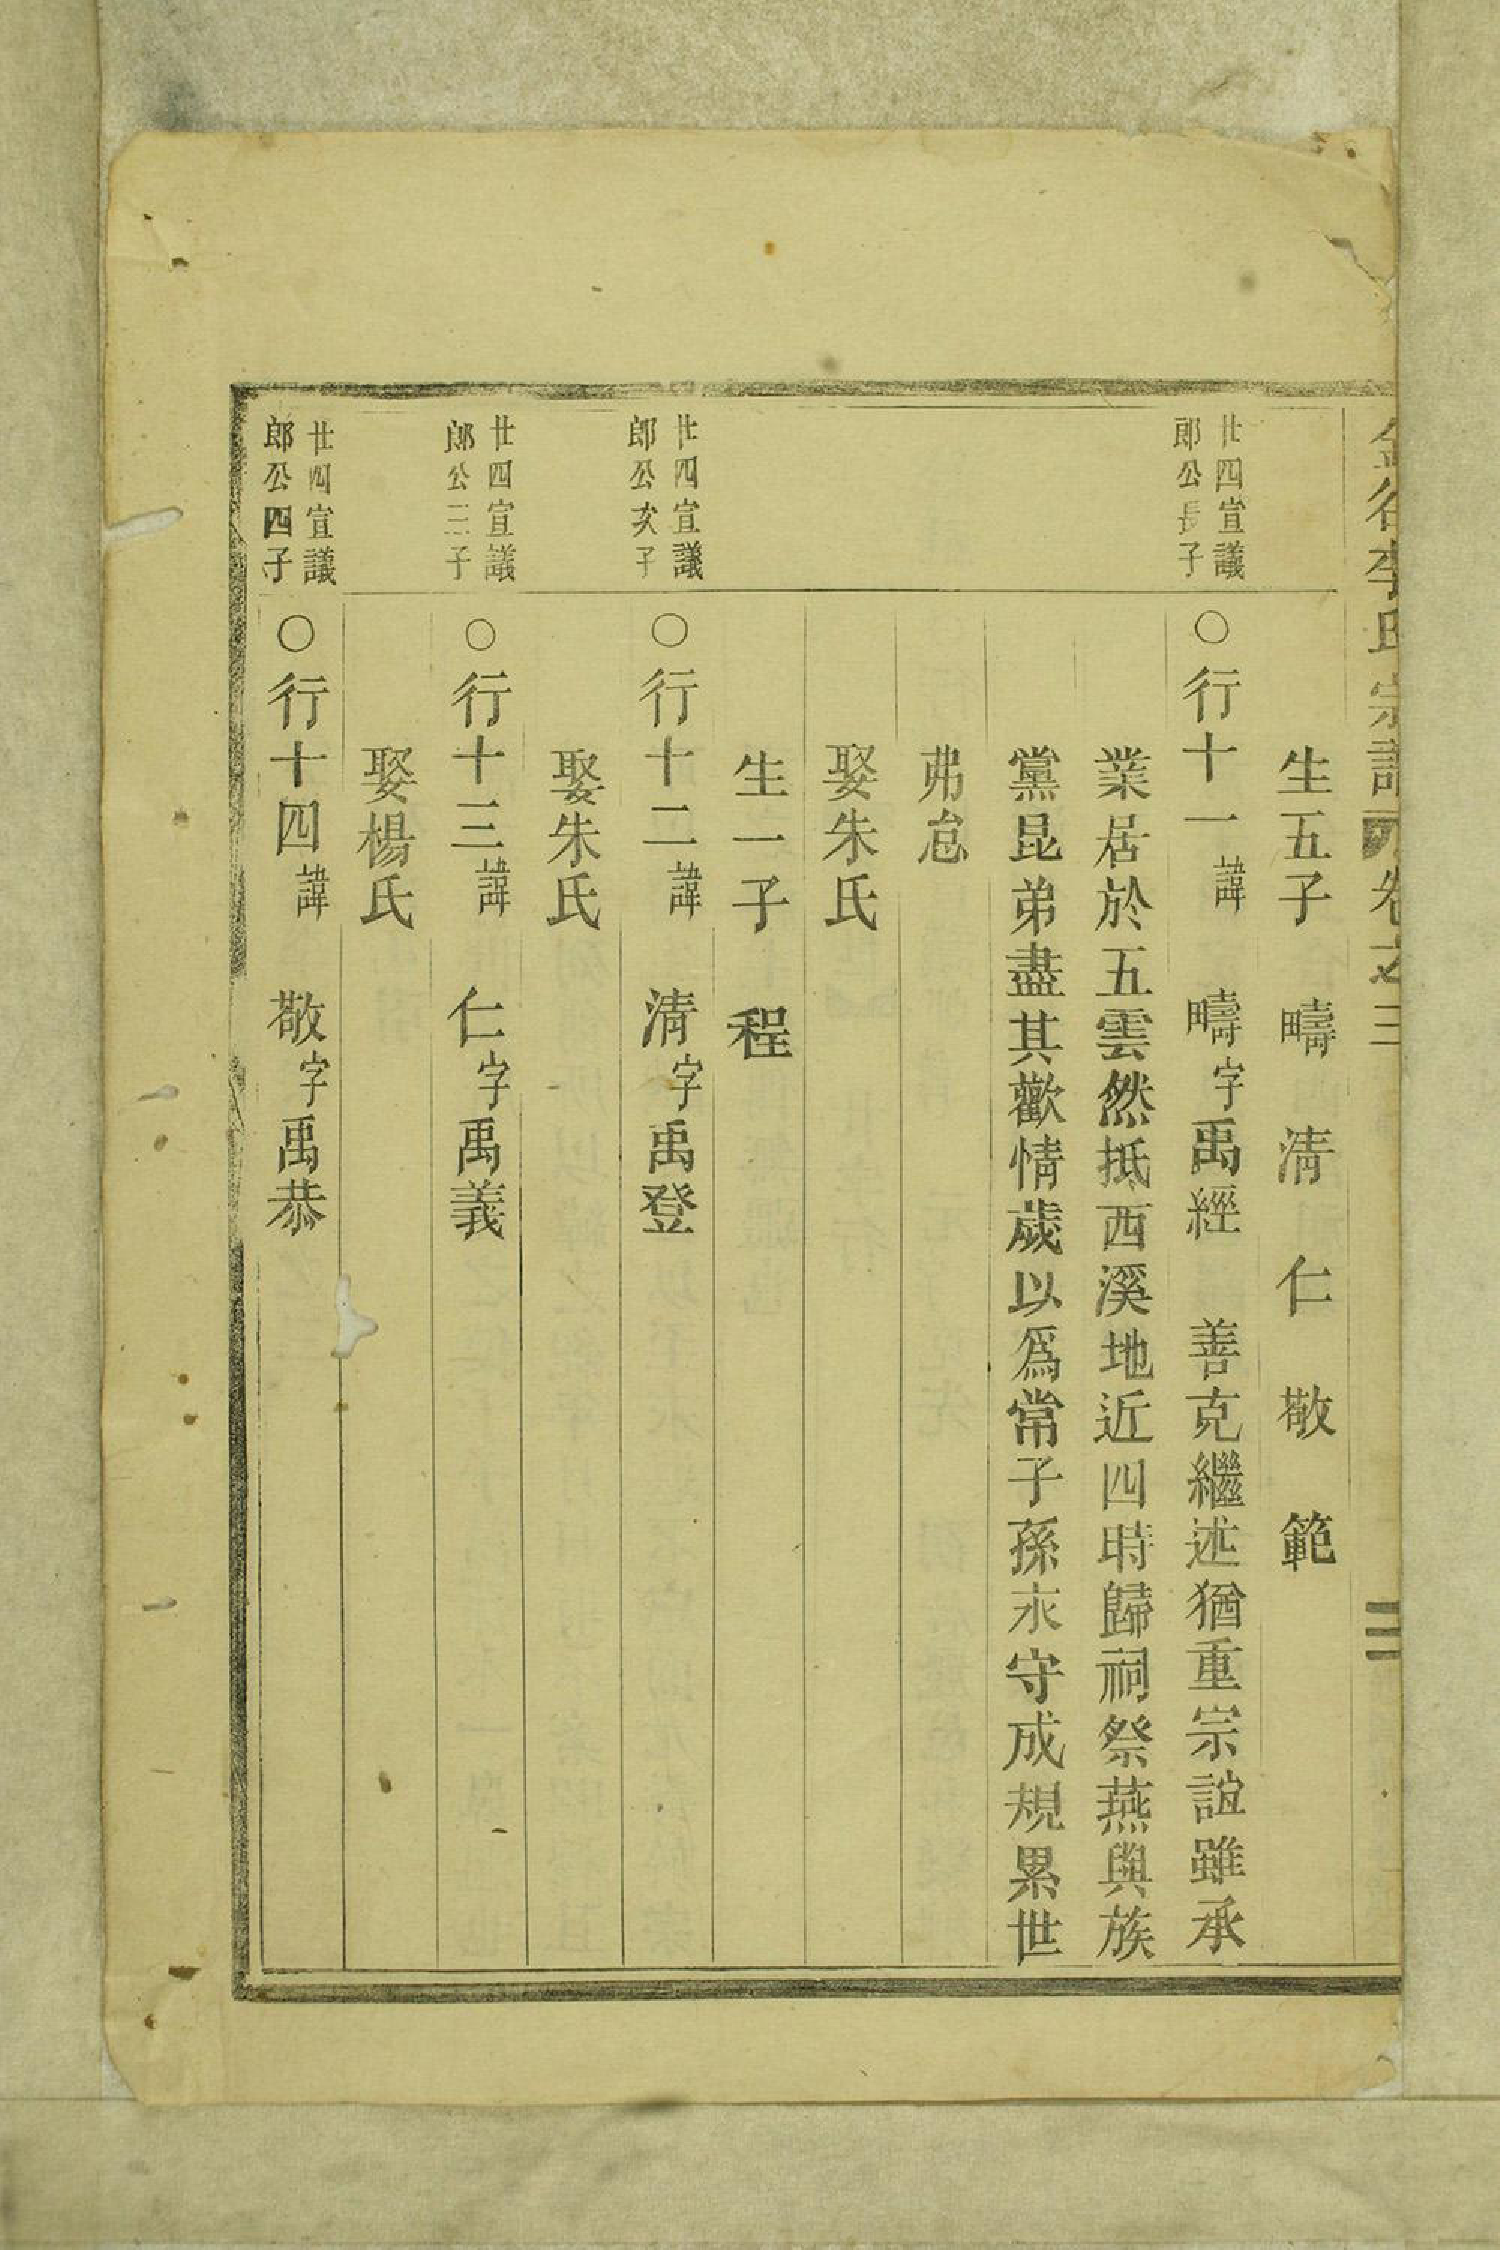 李氏宗譜 卷之三
生五子 疇 清 仁 敬 範
廿四宣議
郎公長子
○行十一諱 疇字禹經 善克繼述猶重宗誼雖承
業居於五雲然抵西溪地近四時歸祠祭燕與族
黨昆弟盡其歡情歲以爲常子孫永守成規累世
弗怠
娶朱氏
生一子 程
廿四宣議
郎公次子
○行十二諱 清字禹登
娶朱氏
廿四宣議
郎公三子
○行十三諱 仁字禹義
娶楊氏
廿四宣議
郎公四子
○行十四諱 敬字禹恭